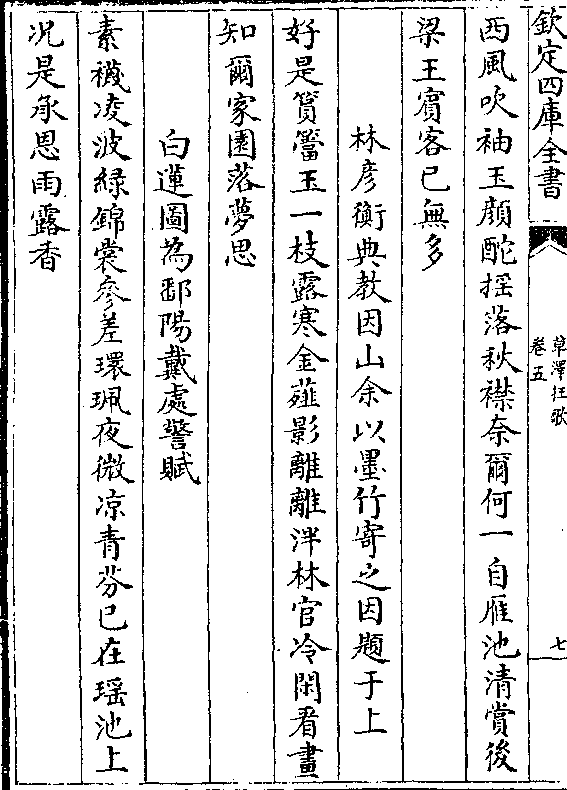 欽定四庫全書
草澤狂歌
卷五
七
西風吹袖玉顔酡揺落秋襟奈爾何一自雁池清賞後
梁王賓客已無多
林彦衡典教因山余以墨竹寄之因題于上
好是篔簹玉一枝露寒金薤影離離泮林官冷閑看畫
知爾家園落夢思
白蓮圖為鄱陽戴處謷賦
素襪凌波緑錦裳參差環珮夜微凉青芬已在瑶池上
况是承恩雨露香